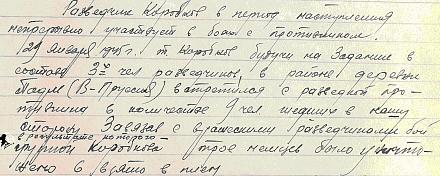 Разведчик Коробков в период наступления
непрерывно участвует в боях с противником.
29 января 1945 г. т. Коробков будучи на Задании в
составе 3х чел разведчиков, в районе деревни
(В-Пруссия) встретился с разведкой про-
тивника в количестве 9 чел. шедших в нашу
сторону. Завязав с вражескими разведчиками бой
в результате которого
группой Коробкова трое немцев было уничто-
жено 6 взято в плен